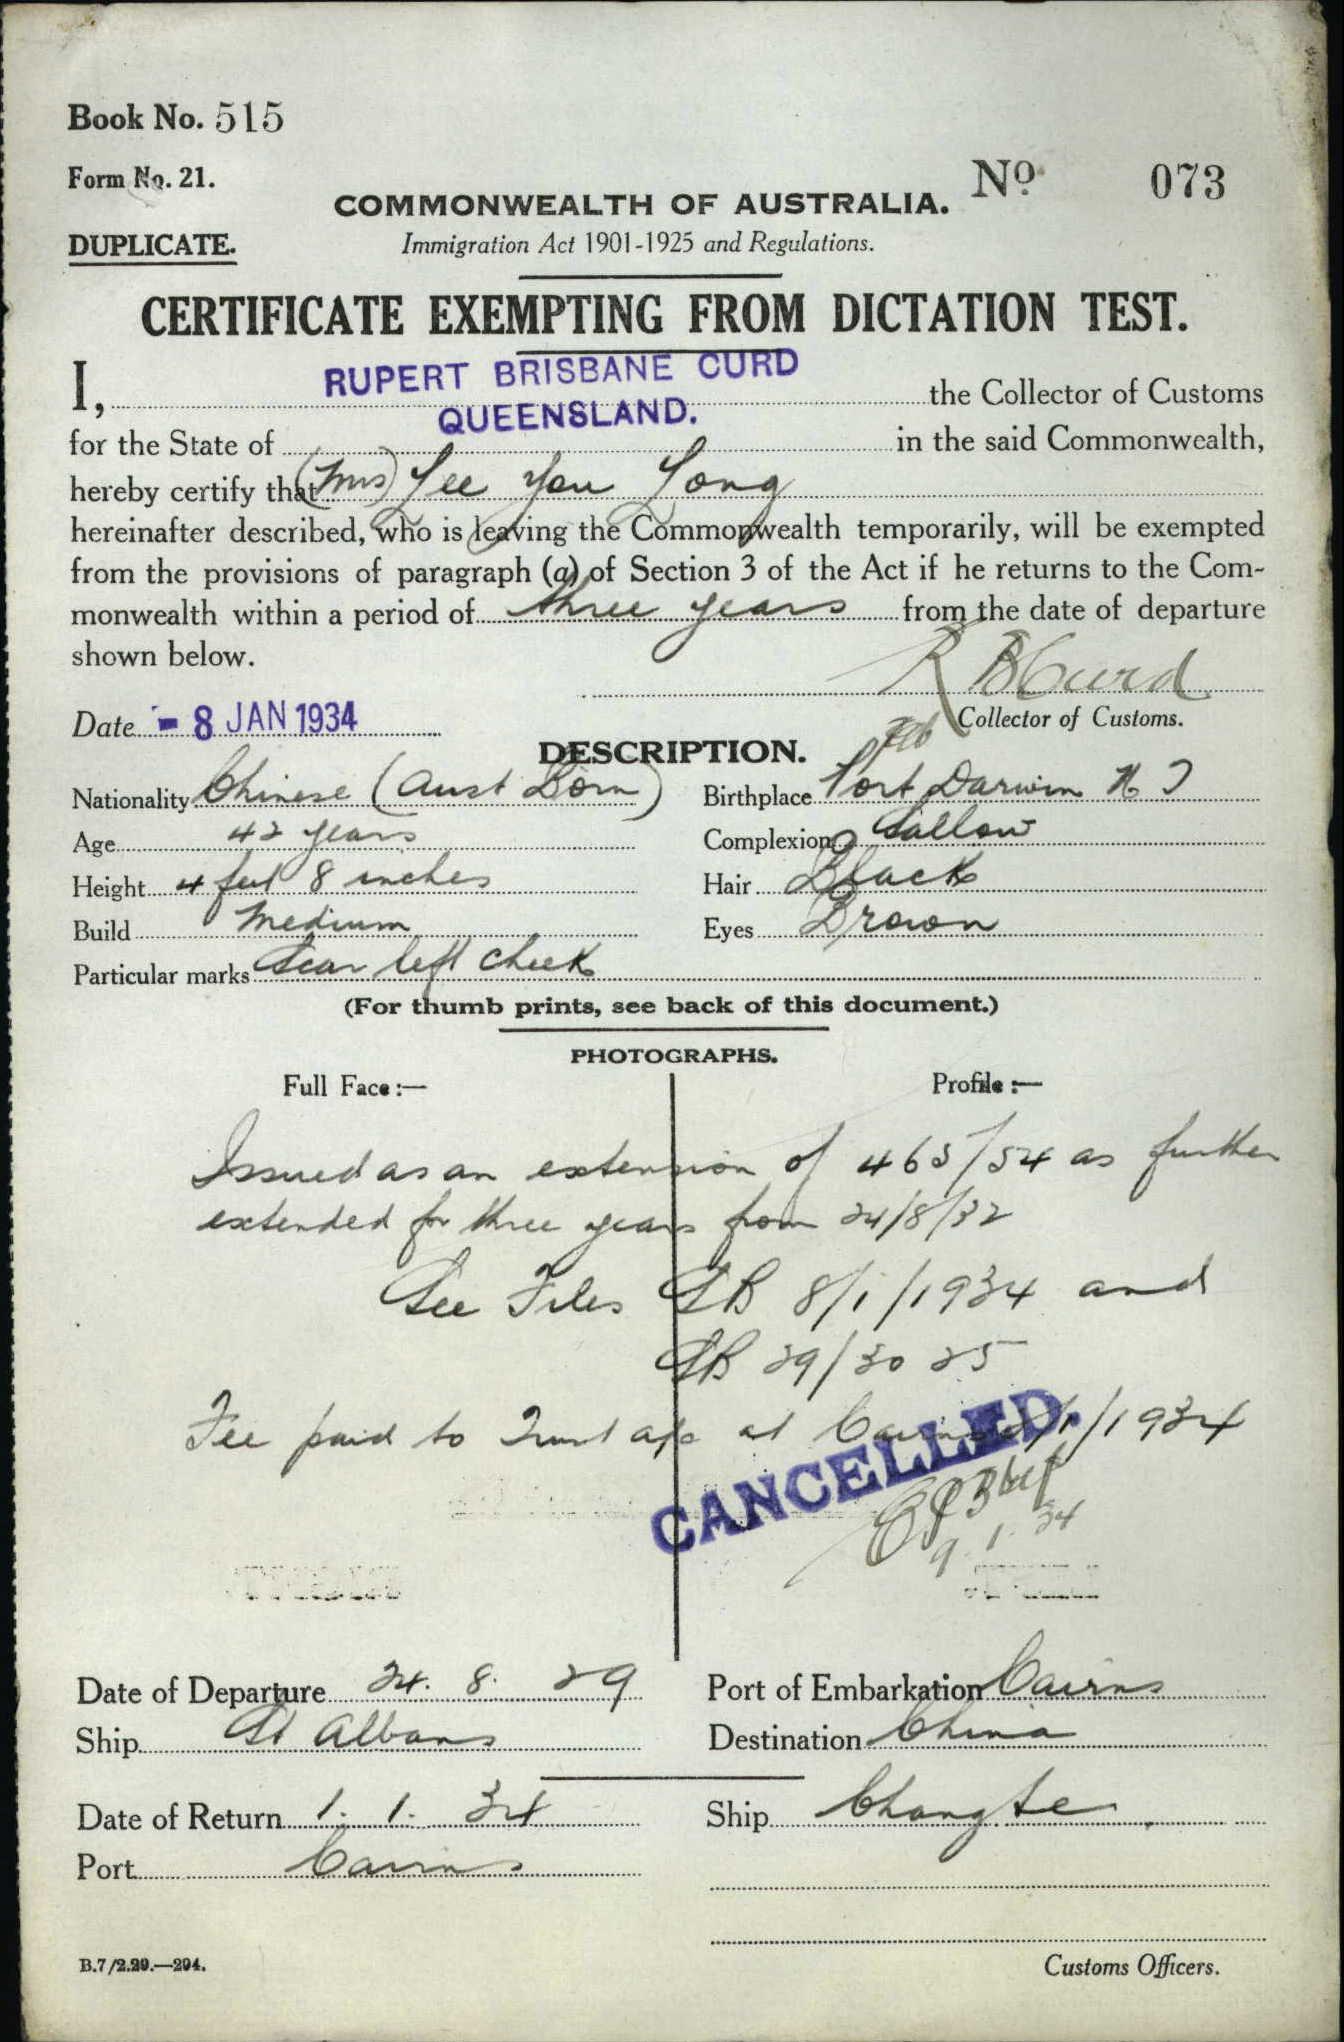 Book No. 515
Form No. 21.
No 073
COMMONWEALTH OF AUSTRALIA.
DUPLICATE.
Immigration Act 1901-1925 and Regulations.
CERTIFICATE EXEMPTING FROM DICTATION TEST.
I, RUPERT BRISBANE CURD the Collector of Customs
for the State of QUEENSLAND. in the said Commonwealth,
hereby certify that (Mrs) Lee You Long
hereinafter described, who is leaving the Commonwealth temporarily, will be exempted
from the provisions of paragraph (a) of Section 3 of the Act if he returns to the Com-
monwealth within a period of three years from the date of departure
shown below.
R B Curd
Date - 8 JAN 1934
Collector of Customs.
DESCRIPTION.
Nationality Chinese (Aust Born) Birthplace Port Darwin N T
Age 42 years Complexion Sallow
Height 4 feet 8 inches Hair Black
Build Medium Eyes Brown
Particular marks Scar left cheek
(For thumb prints, see back of this document.)
PHOTOGRAPHS.
Full Face:— Profile:—
Issued as an extension of 465/54 as further
extended for three years from 24/8/32
See Files SB 8/1/1934 and
SB 29/30 25
Fee paid to Trust a/c at Cairns /1/1934
CANCELLED.
9. 1. 34
Date of Departure 24. 8. 29 Port of Embarkation Cairns
Ship St Albans Destination China
Date of Return 1. 1. 34 Ship Changte
Port Cairns
B.7/2.29.—294.
Customs Officers.